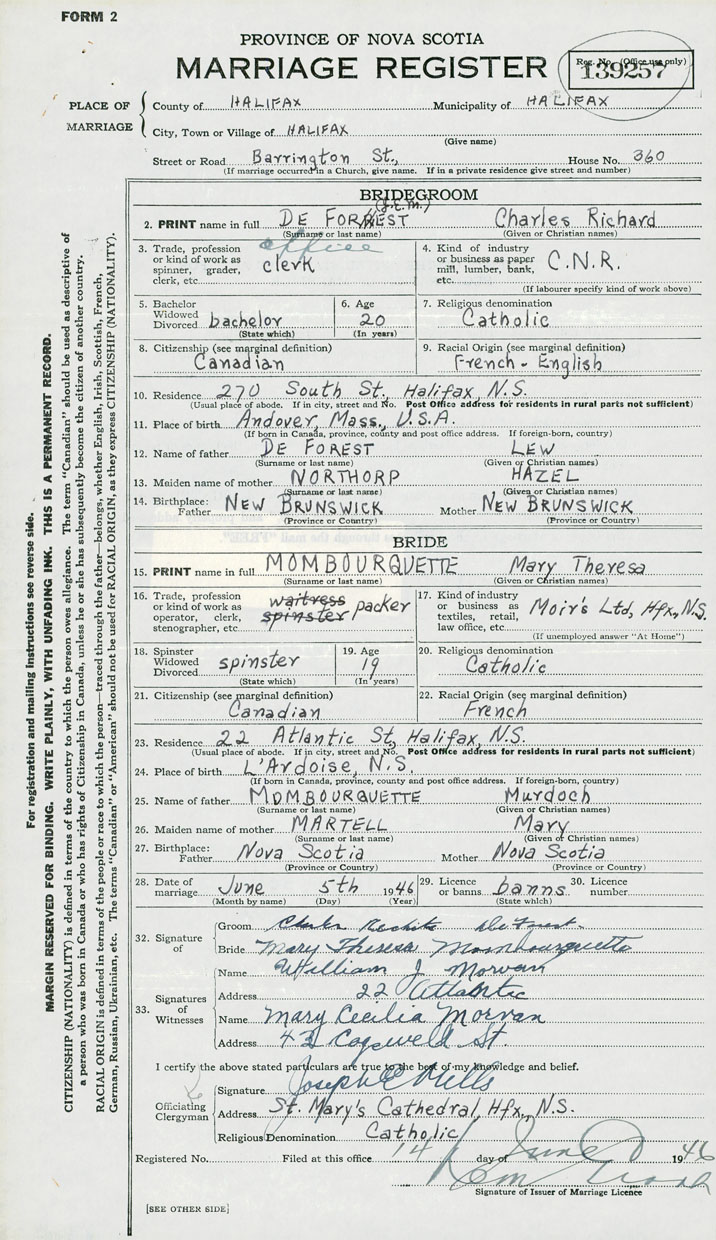 FORM 2
PROVINCE OF NOVA SCOTIA
MARRIAGE REGISTER
Reg. No. (Office use only)
139257
PLACE OF MARRIAGE
County of HALIFAX Municipality of HALIFAX
City, Town or Village of HALIFAX
(Give name)
Street or Road Barrington St., House No. 360
(If marriage occurred in a Church, give name. If in a private residence give street and number)
BRIDEGROOM
2. PRINT name in full DE FORREST Charles Richard
(Surname or last name) (Given or Christian names)
3. Trade, profession or kind of work as spinner, grader, clerk, etc. office clerk
4. Kind of industry or business as paper mill, lumber, bank, etc. C.N.R.
(If labourer specify kind of work above)
5. Bachelor Widowed Divorced bachelor
(State which)
6. Age 20
(In years)
7. Religious denomination
Catholic
8. Citizenship (see marginal definition)
Canadian
9. Racial Origin (see marginal definition)
French - English
10. Residence 270 South St., Halifax, N.S.
(Usual place of abode. If in city, street and No. Post Office address for residents in rural parts not sufficient)
11. Place of birth Andover, Mass., U.S.A.
(If born in Canada, province, county and post office address. If foreign-born, country)
12. Name of father DE FOREST LEW
(Surname or last name) (Given or Christian names)
13. Maiden name of mother NORTHORP HAZEL
(Surname or last name) (Given or Christian names)
14. Birthplace: Father NEW BRUNSWICK Mother NEW BRUNSWICK
(Province or Country) (Province or Country)
BRIDE
15. PRINT name in full MOMBOURQUETTE Mary Theresa
(Surname or last name) (Given or Christian names)
16. Trade, profession or kind of work as operator, clerk, stenographer, etc. waitress spinster packer
17. Kind of industry or business as textiles, retail, law office, etc. Moir's Ltd, Hfx, N.S.
(If unemployed answer "At Home")
18. Spinster Widowed Divorced spinster
(State which)
19. Age 19
(In years)
20. Religious denomination
Catholic
21. Citizenship (see marginal definition)
Canadian
22. Racial Origin (see marginal definition)
French
23. Residence 22 Atlantic St, Halifax, N.S.
(Usual place of abode. If in city, street and No. Post Office address for residents in rural parts not sufficient)
24. Place of birth L'Ardoise, N.S.
(If born in Canada, province, county and post office address. If foreign-born, country)
25. Name of father MOMBOURQUETTE Murdoch
(Surname or last name) (Given or Christian names)
26. Maiden name of mother MARTELL Mary
(Surname or last name) (Given or Christian names)
27. Birthplace: Father Nova Scotia Mother Nova Scotia
(Province or Country) (Province or Country)
28. Date of marriage June 5th 1946
(Month by name) (Day) (Year)
29. Licence or banns banns
(State which)
30. Licence number
32. Signature of
Groom
Bride Mary Theresa Mombourquette
33. Signatures of Witnesses
Name William J Morvan
Address 22 Atlantic
Name Mary Cecilia Morvan
Address 43 Cogsweld St.
I certify the above stated particulars are true to the best of my knowledge and belief.
Officiating Clergyman
Signature Joseph E Mills
Address St. Mary's Cathedral, Hfx., N.S.
Religious Denomination Catholic
Registered No. Filed at this office 14 day of June 1946
Signature of Issuer of Marriage Licence
[SEE OTHER SIDE]
For registration and mailing instructions see reverse side.
MARGIN RESERVED FOR BINDING. WRITE PLAINLY, WITH UNFADING INK. THIS IS A PERMANENT RECORD.
CITIZENSHIP (NATIONALITY) is defined in terms of the country to which the person owes allegiance. The term "Canadian" should be used as descriptive of
a person who was born in Canada or who has rights of Citizenship in Canada, unless he or she has subsequently become the citizen of another country.
RACIAL ORIGIN is defined in terms of the people or race to which the person—traced through the father—belongs, whether English, Irish, Scottish, French,
German, Russian, Ukrainian, etc. The terms "Canadian" or "American" should not be used for RACIAL ORIGIN, as they express CITIZENSHIP (NATIONALITY).